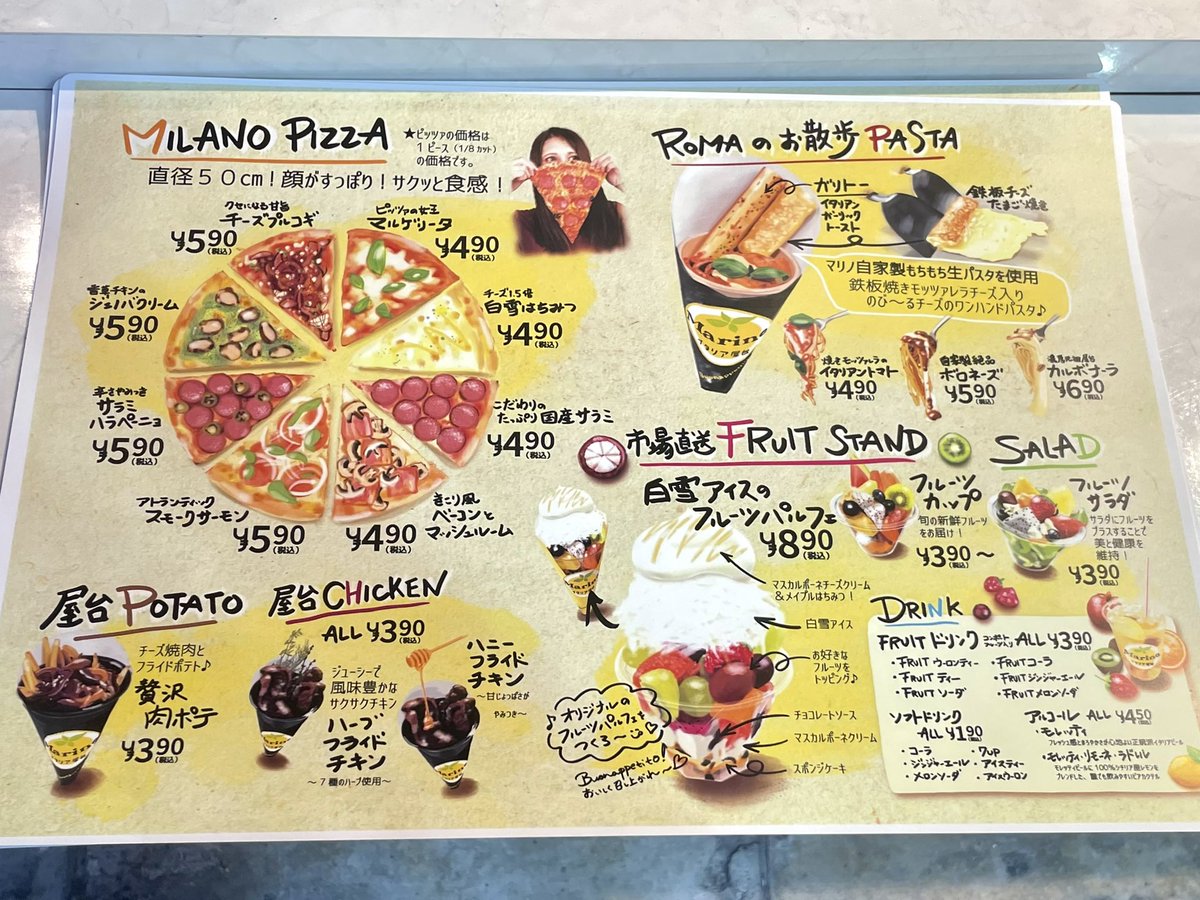 MILANO PIZZA
★ピッツァの価格は
1ピース(1/8カット)
の価格です。
直径50cm!顔がすっぽり!サクッと食感!
クセになる甘旨
チーズプルコギ
¥590
(税込)
ピッツァの女王
マルゲリータ
¥490
(税込)
チーズ1.5倍
白雪はちみつ
¥490
(税込)
こだわりの
たっぷり国産サラミ
¥490
(税込)
きこり風
ベーコンと
マッシュルーム
¥490
(税込)
アトランティック
スモークサーモン
¥590
(税込)
辛さやみつき
サラミ
ハラペーニョ
¥590
(税込)
チキンの
ジェノバクリーム
¥590
(税込)
ROMAのお散歩PASTA
ガリトー
イタリアン
ガーリック
トースト
鉄板チーズ
たまご焼き
マリノ自家製もちもち生パスタを使用
鉄板焼きモッツァレラチーズ入り
のび〜るチーズのワンハンドパスタ♪
Marino
イタリア屋台
焼きモッツァレラの
イタリアントマト
¥490
(税込)
自家製絶品
ボロネーズ
¥590
(税込)
カルボナーラ
¥690
(税込)
市場直送 FRUIT STAND
白雪アイスの
フルーツパルフェ
¥890
(税込)
マスカルポーネチーズクリーム
&メイプルはちみつ!
白雪アイス
お好きな
フルーツを
トッピング♪
チョコレートソース
マスカルポーネクリーム
スポンジケーキ
♪オリジナルの
フルーツパルフェを
つくろ〜
Buonappetito!
おいしく召し上がれ〜
フルーツ
カップ
旬の新鮮フルーツ
をお届け!
¥390〜
(税込)
SALAD
フルーツ
サラダ
サラダにフルーツを
プラスすることで
美と健康を
維持!
¥390
(税込)
屋台POTATO
チーズ焼肉と
フライドポテト♪
贅沢
肉ポテ
¥390
(税込)
Marino
屋台CHICKEN
ALL ¥390
(税込)
ジューシーで
風味豊かな
サクサクチキン
ハーブ
フライド
チキン
〜7種のハーブ使用〜
ハニー
フライド
チキン
〜甘じょっぱさが
やみつき〜
DRINK
FRUITドリンク ALL ¥390
(税込)
・FRUITウーロンティー
・FRUITティー
・FRUITソーダ
・FRUITコーラ
・FRUITジンジャーエール
・FRUITメロンソーダ
ソフトドリンク
ALL ¥190
(税込)
・コーラ
・ジンジャーエール
・メロンソーダ
・7UP
・アイスティー
・アイスウーロン
アルコール ALL ¥450
(税込)
・モレッティ
・モレッティ・リモーネ・ラドレル
モレッティビールに100%シチリア産レモンを
ブレンドした、誰でも飲みやすいビアカクテル